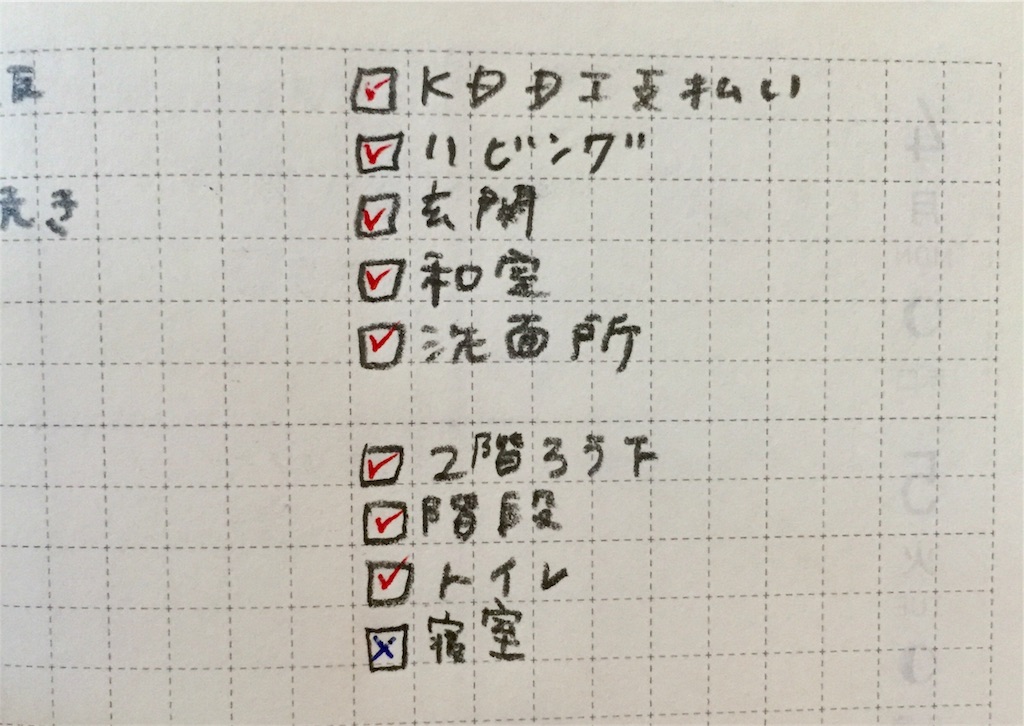 KDDI支払い
リビング
玄関
和室
洗面所
2階ろう下
階段
トイレ
寝室